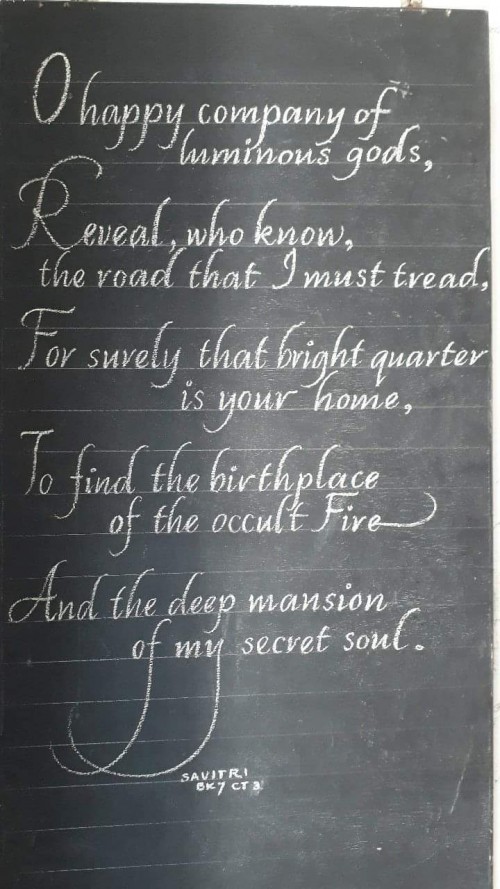 O happy company of
luminous gods,
Reveal, who know,
the road that I must tread,
For surely that bright quarter
is your home,
To find the birthplace
of the occult Fire
And the deep mansion
of my secret soul.
SAVITRI
BK7 CT 3